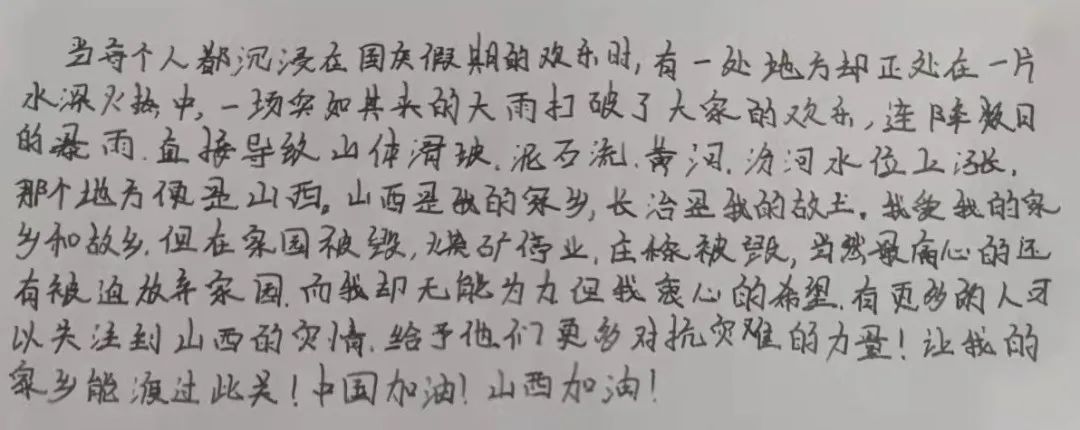 当每个人都沉浸在国庆假期的欢乐时,有一处地方却正处在一片
水深火热中,一场突如其来的大雨打破了大家的欢乐,连阵数日
的暴雨.直接导致山体滑坡.泥石流.黄河.汾河水位上涨.
那个地方便是山西。山西是我的家乡,长治是我的故土。我爱我的家
乡和故乡.但在家园被毁,煤矿停业.庄稼被毁,当然最痛心的还
有被迫放弃家园.而我却无能为力但我衷心的希望.有更多的人可
以关注到山西的灾情.给予他们更多对抗灾难的力量!让我的
家乡能渡过此关!中国加油!山西加油!